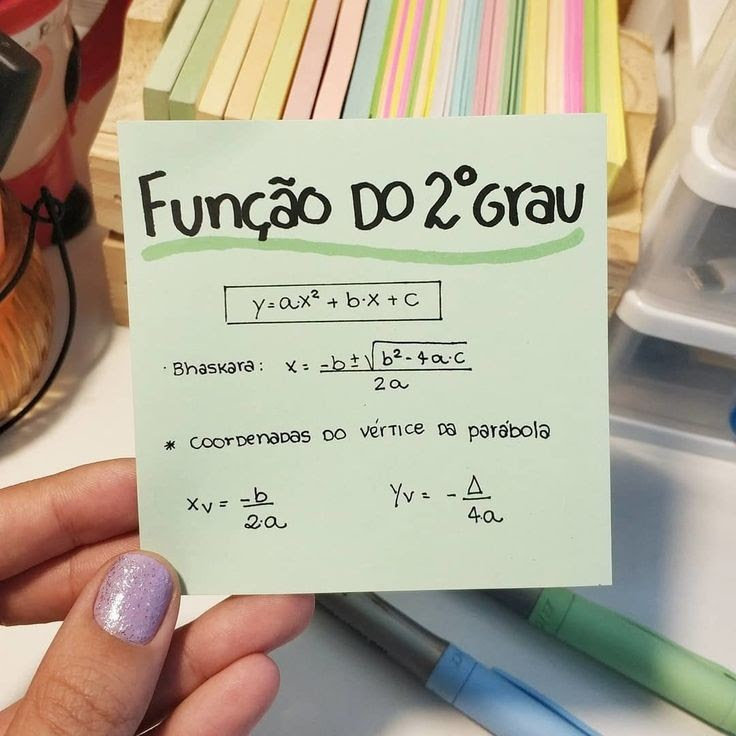 Função DO 2º Grau
y = a.x² + b.x + c
· Bhaskara: x = -b ± √b² - 4a.c / 2a
* COORDENADAS DO vértice DA parábola
Xv = -b / 2.a Yv = - Δ / 4.a